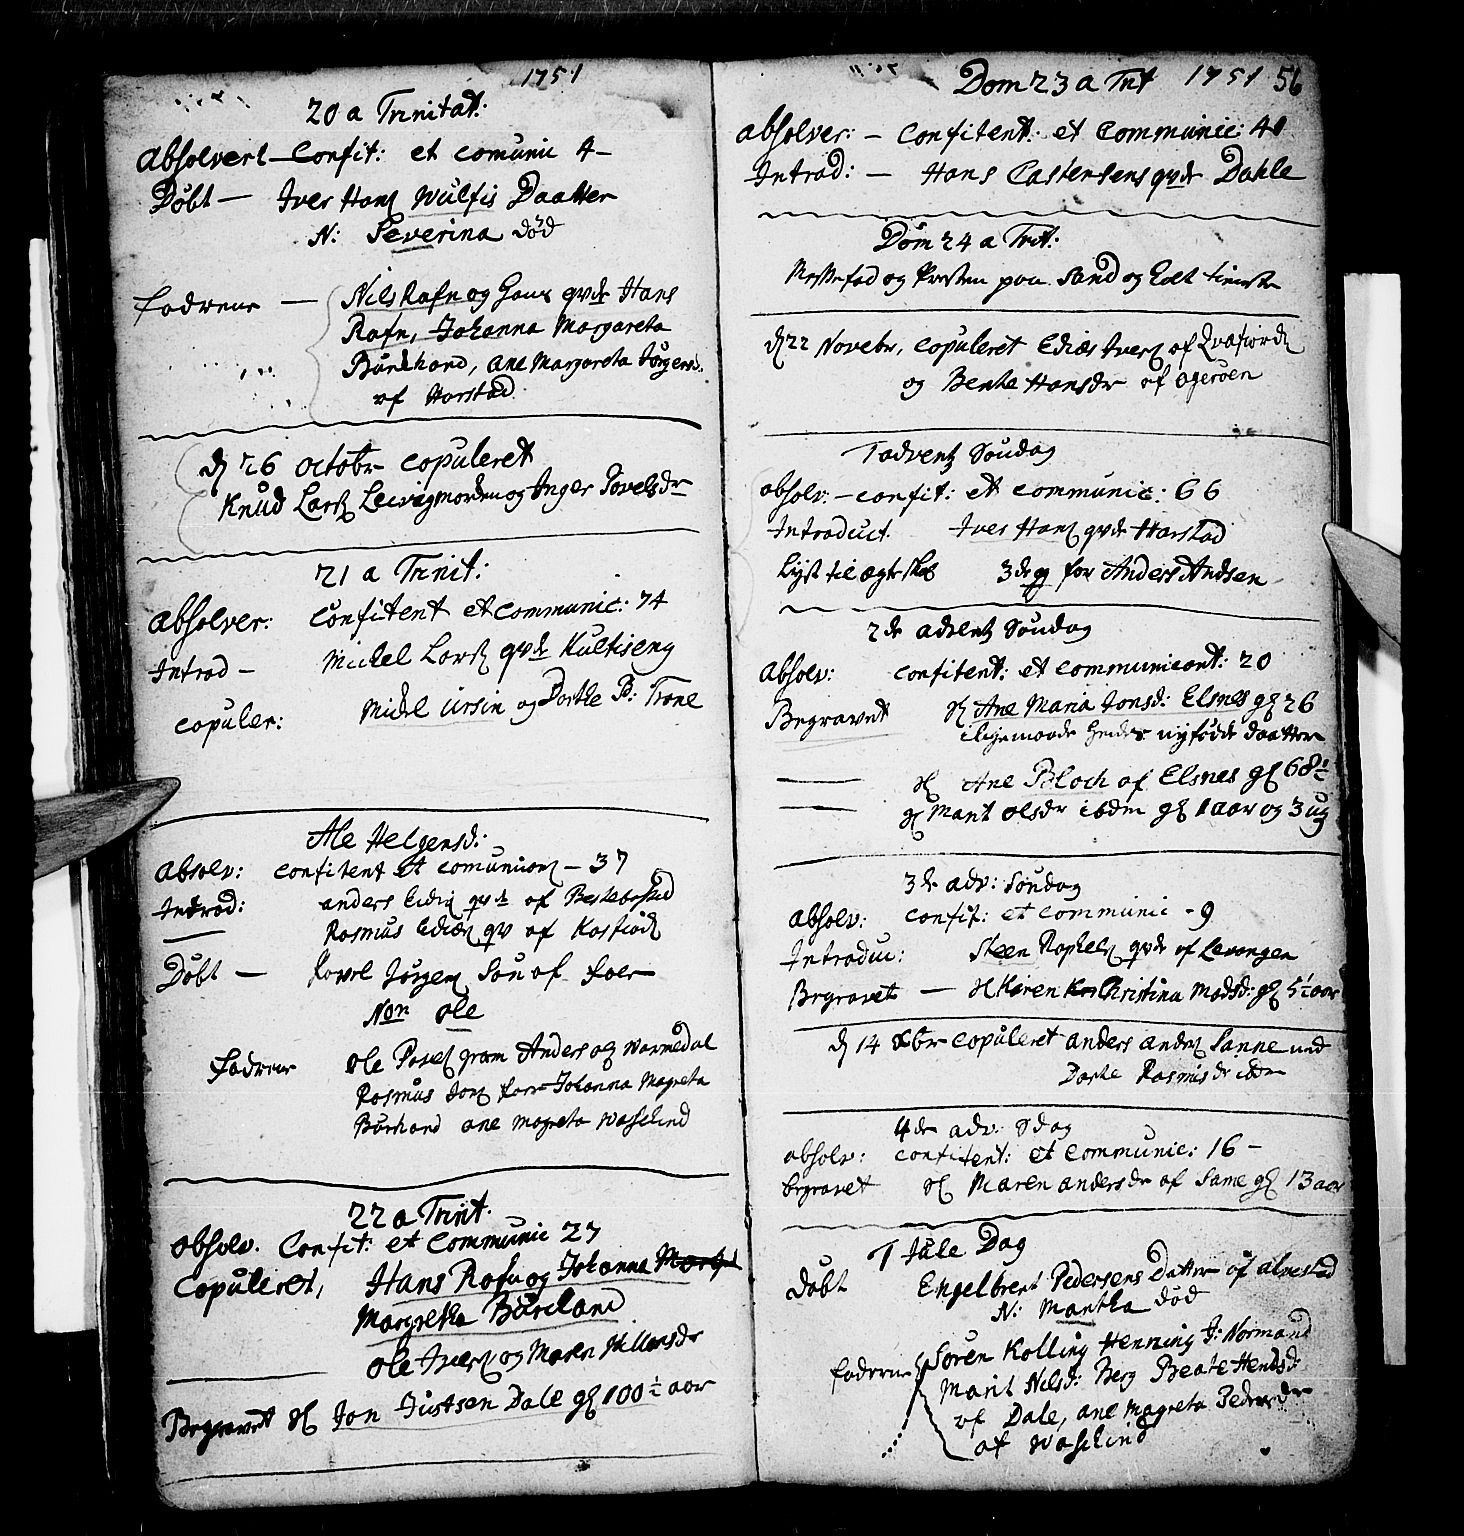 1751
20 a Trinitat:
Absolvert — Confit: et comunic 4 —
Døbt — Iver Hans Wulfis Daatter
N: Severina død
fadrene — Nils Rafn og Hans qvde Hans
Rafn, Johanna Margareta
Burchard, ane Margareta Jørgens
af Harstad
d 26 octobr copuleret
Knud Lars Leivigmorden og Inger Povelsdr
21 a Trinit:
Absolver: Confitent et communic: 74
Introd — Michel Lars qvde Kultiseng
copuler: Michel Ursin og Dorthe P: Trane
Ale Helgensd:
Absolv: confitent et comunion — 37
Introd: anders qvde af
Rasmus qv af
Døbt — Povel Jørgens Søn af Foer
Non ole
fadrene ole Povels gram Anders og Normedal
Rasmus Jons Foer Johanna Magreta
Burchard ane magreta Wasklind
22 a Trinit.
Absolv. Confit: et Communic 27
Copuleret, Hans Rafn og Johanna
Margretha Burchard
ole Ivers og Maren Nillasdr
Begravet Jon Justsen Dale 100½ aar
Dom 23 a Trit 1751 56
Absolver: — Confitent: et Communic: 41
Introd: — Hans Castensens qvde Dahle
Dom 24 a Trit:
Messefad og Presten paa Sand og
d 22 Novebr, copuleret Edias Ivers af Qvafiord
og Berthe Hansdr af ogeroen
1 advents Søndag
absolv: — confit: et communic: 66
Introduct. Iver Hans qvde Harstad
Lyst til ægteskab 3de g for Anders Andsen
2de advents Søndag
Absolv: confitent: et communicant: 20
Begravet Ane Maria Jonsd: Elsnes 26
ligemaade hendes nyfødde daatter
—— Ane Bloch af Elsnes 68½
—— Marit olsdr ibdm 1 aar og 3 ug
3de adv: Søndag
Absolv: Confit: et communic - 9
Introduc: Steen Raphels qvde af Levangen
Begravet — Karen Christina Madsd: 5½ aar
d 14 Xbr copuleret anders anders Sanne und
Dorte Rasmisdr ibdm
4de adv: Sdag
absolv: confitent: et communic: 16 —
begravet Maren andersdr af Same 13 aar
1 Jule Dag
Døbt Engelbret Pedersens Datter af alvestad
N: Martha død
fadrene Søren Kolling Henning J: Normand
Marit Nilsd: Berg Beate Hendsd:
af Dale, ane magreta Pedersdr
af Wasklind